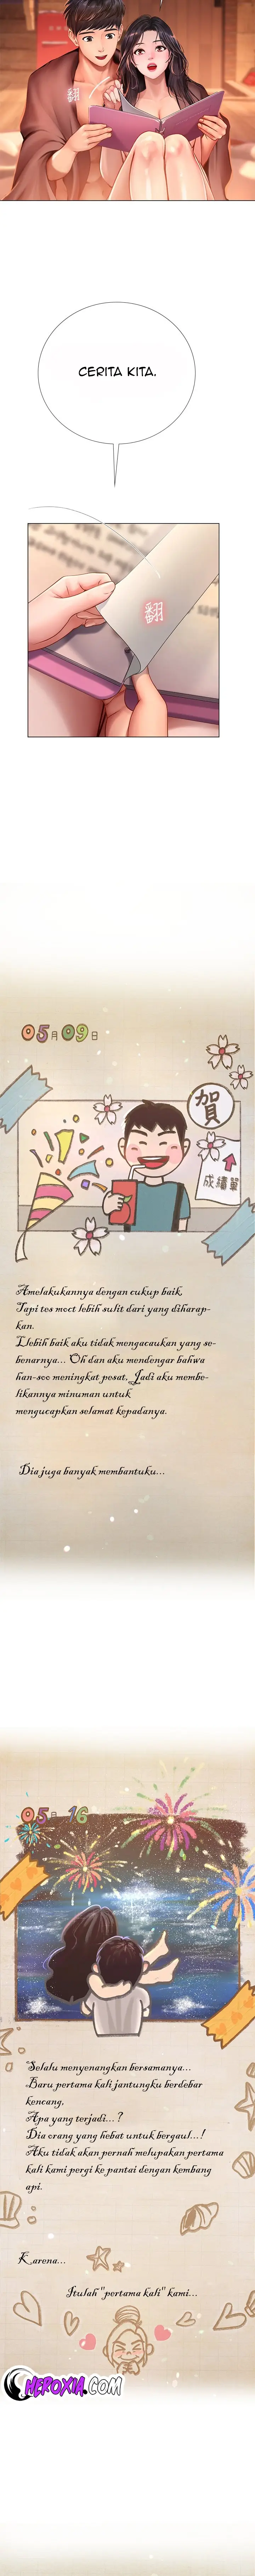 翻
CERITA KITA.
翻
05月09日
賀
成績單
Amelakukannya dengan cukup baik,
Tapi tes moct lebih sulit dari yang diharap-
kan.
Llebih baik aku tidak mengacaukan yang se-
benarnya... Oh dan aku mendengar bahwa
han-soo meningkat pesat, Jadi aku membe-
likannya minuman untuk
mengucapkan selamat kepadanya.
Dia juga banyak membantuku...
05月16
Selalu menyenangkan bersamanya...
Baru pertama kali jantungku berdebar
kencang,
Apa yang terjadi...?
Dia orang yang hebat untuk bergaul...!
Aku tidak akan pernah melupakan pertama
kali kami pergi ke pantai dengan kembang
api.
Karena...
Itulah "pertama kali" kami...
HEROXIA.COM